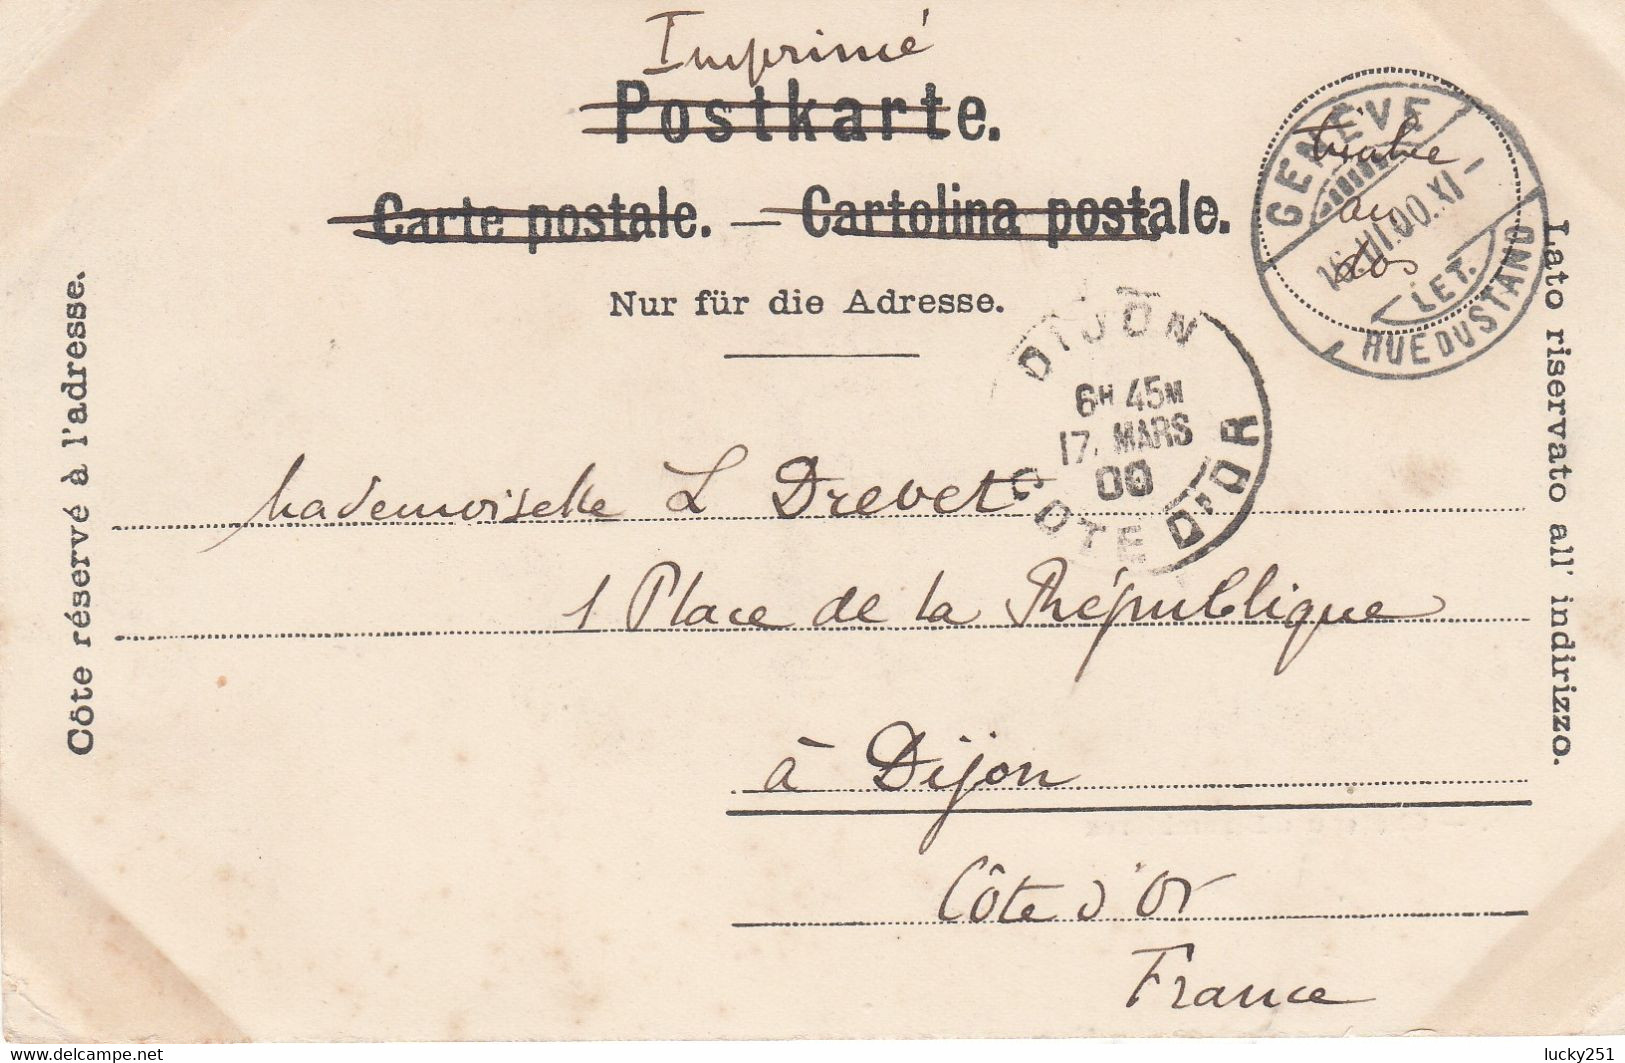 Imprimé
Postkarte.
Carte postale. — Cartolina postale.
Nur für die Adresse.
Côte réservé à l'adresse.
Lato riservato all' indirizzo.
GENÈVE
16.III.00.XI-
LET.
RUE DU STAND
timbre
au
dos
DIJON
6H 45M
17. MARS
00
COTE D'OR
Mademoiselle L Drevet
1 Place de la République
à Dijon
Côte d'Or
France
lucky251 @ delcampe.net